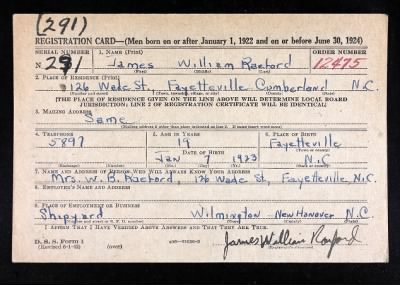 (291)
REGISTRATION CARD—(Men born on or after January 1, 1922 and on or before June 30, 1924)
SERIAL NUMBER 1. NAME (Print) ORDER NUMBER
N 291 James William Raeford 12475
(First) (Middle) (Last)
2. PLACE OF RESIDENCE (Print)
126 Wade St., Fayetteville Cumberland N.C
(Number and street) (Town, township, village, or city) (County) (State)
[THE PLACE OF RESIDENCE GIVEN ON THE LINE ABOVE WILL DETERMINE LOCAL BOARD
JURISDICTION; LINE 2 OF REGISTRATION CERTIFICATE WILL BE IDENTICAL]
3. MAILING ADDRESS
Same
[Mailing address if other than place indicated on line 2. If same insert word same]
4. TELEPHONE 5. AGE IN YEARS 6. PLACE OF BIRTH
5897 19 Fayetteville
DATE OF BIRTH
Jan 7 1923 N.C
(Exchange) (Number) (Mo.) (Day) (Yr.) (State or country)
7. NAME AND ADDRESS OF PERSON WHO WILL ALWAYS KNOW YOUR ADDRESS
Mrs. W. B. Raeford, 126 Wade St, Fayetteville N.C.
8. EMPLOYER'S NAME AND ADDRESS
9. PLACE OF EMPLOYMENT OR BUSINESS
Shipyard Wilmington New Hanover N.C
(Number and street or R. F. D. number) (Town) (County) (State)
I AFFIRM THAT I HAVE VERIFIED ABOVE ANSWERS AND THAT THEY ARE TRUE.
D. S. S. FORM 1
(Revised 6-1-42) (over) James William Raeford
(Registrant's signature)